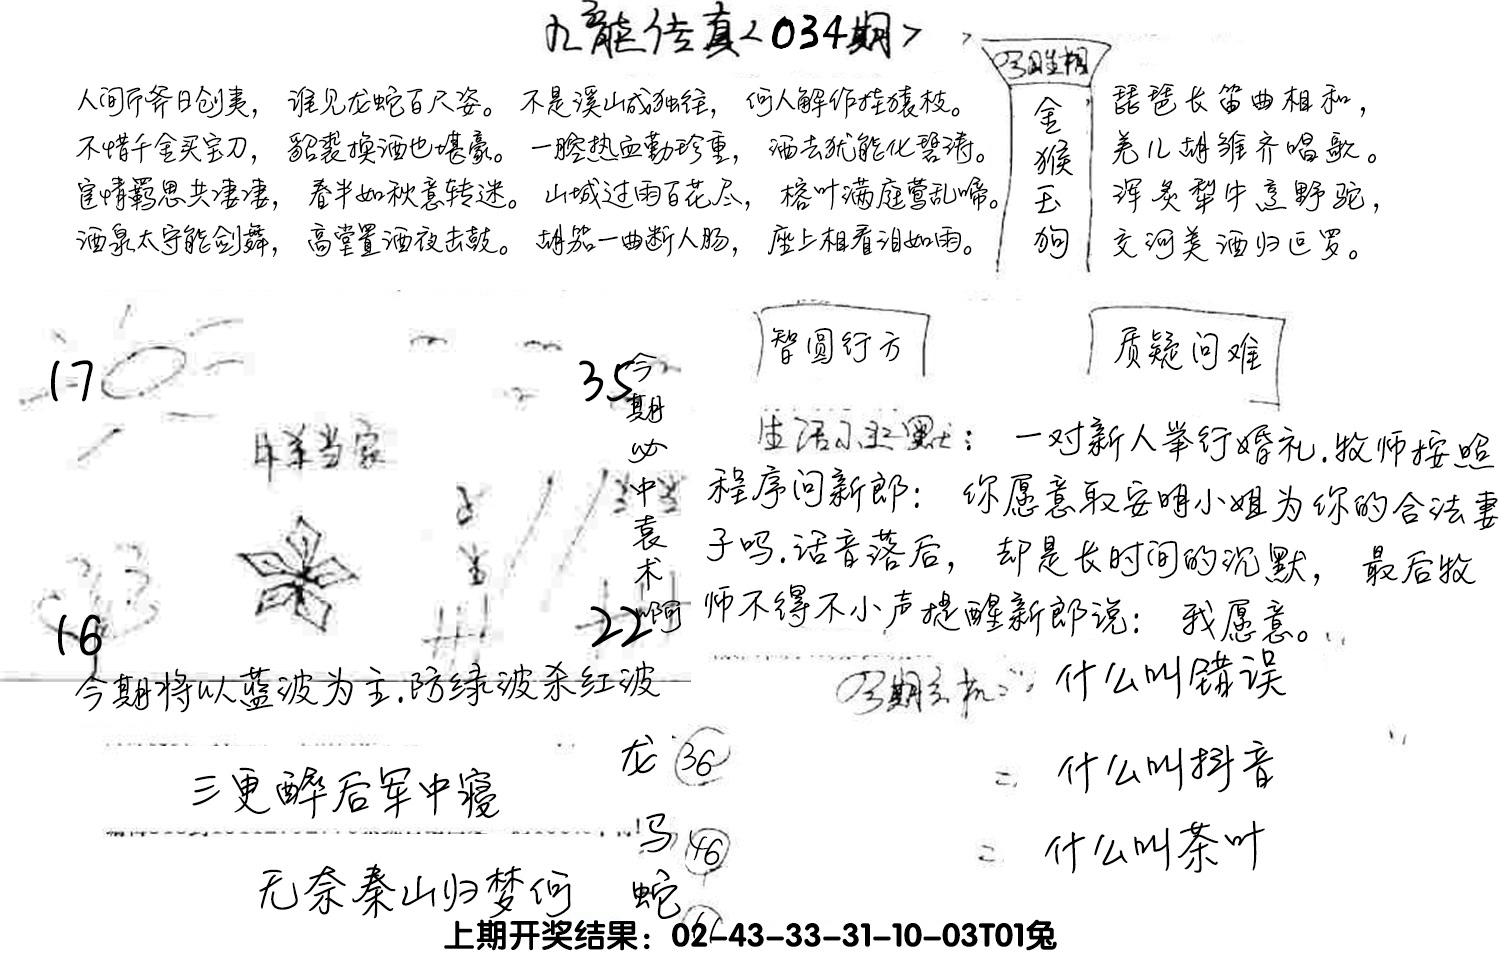 九龙传真<034期>
今期生相
金猴玉狗
人间斤斧日创夷， 谁见龙蛇百尺姿。 不是溪山成独往， 何人解作挂猿枝。
不惜千金买宝刀， 貂裘换酒也堪豪。 一腔热血勤珍重， 洒去犹能化碧涛。
宦情羁思共凄凄， 春半如秋意转迷。 山城过雨百花尽， 榕叶满庭莺乱啼。
酒泉太守能剑舞， 高堂置酒夜击鼓。 胡笳一曲断人肠， 座上相看泪如雨。
琵琶长笛曲相和，
羌儿胡雏齐唱歌。
浑炙犁牛烹野驼，
交河美酒归叵罗。
17
35
羊当家
16
22
今期必中袁术啊
今期将以蓝波为主.防绿波杀红波
智圆行方
质疑问难
生活幽默： 一对新人举行婚礼.牧师按照
程序问新郎： 你愿意取安明小姐为你的合法妻
子吗.话音落后， 却是长时间的沉默， 最后牧
师不得不小声提醒新郎说： 我愿意。
今期玄机： 什么叫错误
= 什么叫抖音
= 什么叫茶叶
三更醉后军中寝
无奈秦山归梦何
龙 36
马 46
蛇
上期开奖结果：02-43-33-31-10-03T01兔